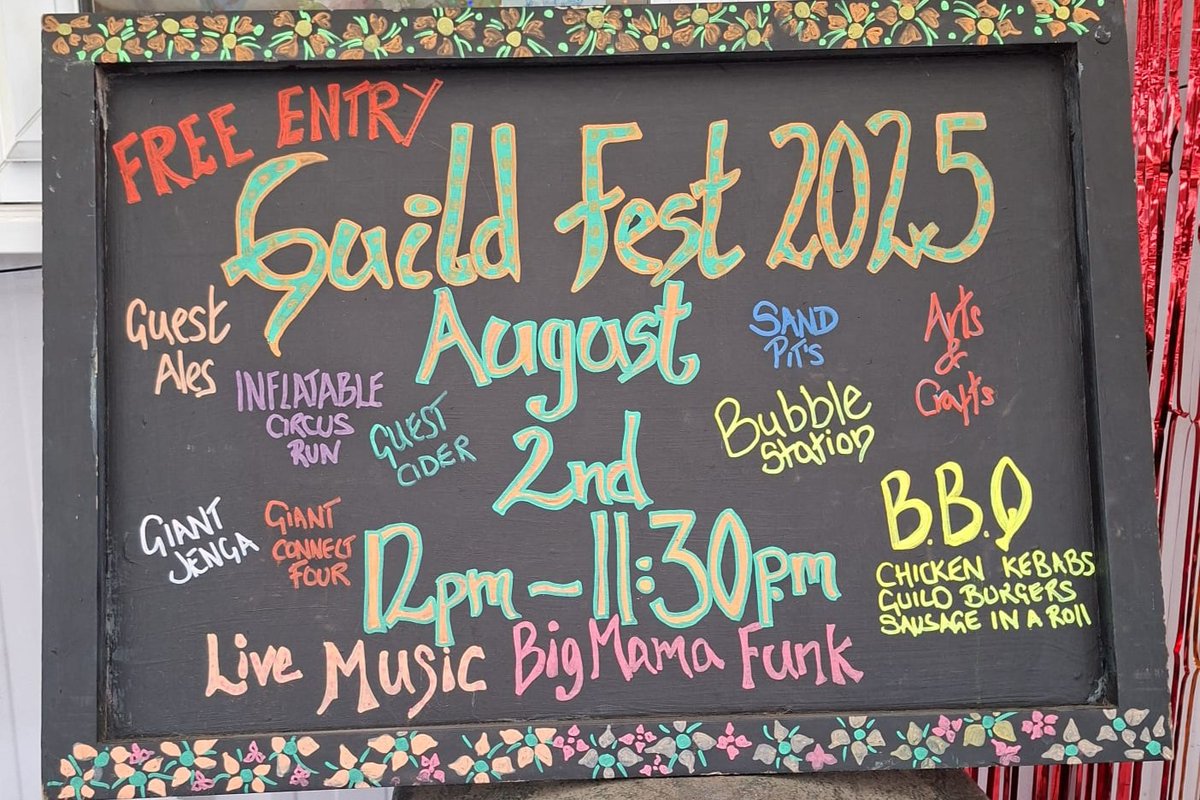 FREE ENTRY
Guild Fest 2025
August
2nd
12pm - 11:30p.m
Guest
Ales
INFLATABLE
CIRCUS
RUN
GUEST
CIDER
SAND
PIT'S
Arts
&
Crafts
Bubble
Station
GIANT
JENGA
GIANT
CONNECT
FOUR
B.B.Q
CHICKEN KEBABS
GUILD BURGERS
SAUSAGE IN A ROll
Live Music Big Mama Funk